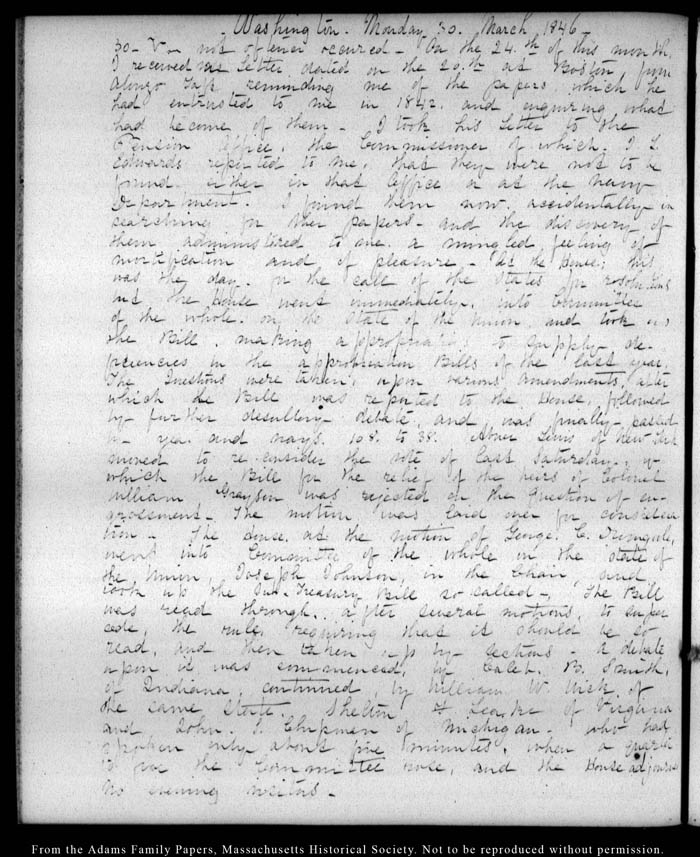 Washington. Monday 30. March 1846
30. V. not oftener occured. On the 24.th of this month,
I received a Letter dated on the 20.th at Boston from
Alonzo reminding me of the papers which he
had entrusted to me in 1842. and enquiring what
had become of them. I took his Letter to the
Pension Office, the Commissioner of which J. L.
Edwards reported to me, that they were not to be
found either in that Office or at the Navy
Department. I found them now accidentally in
searching for other papers. and the discovery of
them administered to me a mingled feeling of
mortification and of pleasure. At the House, this
was the day for the call of the States for resolutions
but the House went immediately into Committee
of the whole on the State of the Union and took up
the Bill making appropriations to supply de-
ficiencies in the appropriation Bills of the last year.
The Questions were taken upon various amendments, after
which the Bill was reported to the House, followed
by further desultory debate, and was finally passed
by yeas and nays. 108. to 38. Abner Lewis of New York
moved to re-consider the vote of last Saturday, by
which the Bill for the relief of the heirs of Colonel
William Grayson was rejected on the Question of en-
grossment. The motion was laid over for considera-
tion. The House at the motion of George C. Dromgoole,
went into Committee of the whole on the state of
the Union, Joseph Johnson, in the Chair, and
took up the Sub-Treasury Bill so called. The Bill
was read through, after several motions, to super
cede, the rule, requiring that it should be so
read, and then taken up by sections. A debate
upon it was commenced, by Caleb. B. Smith,
of Indiana, continued, by William W. Wick, of
the same State. Shelton F. Leake of Virginia
and John. S. Chipman of Michigan. who had
spoken only about five minutes, when a
the Committee rose, and the House adjourned
No evening visitors.
From the Adams Family Papers, Massachusetts Historical Society. Not to be reproduced without permission.